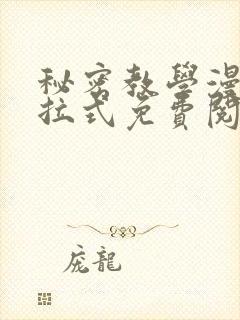 秘密教學漫
拉式免費閱
庞龍